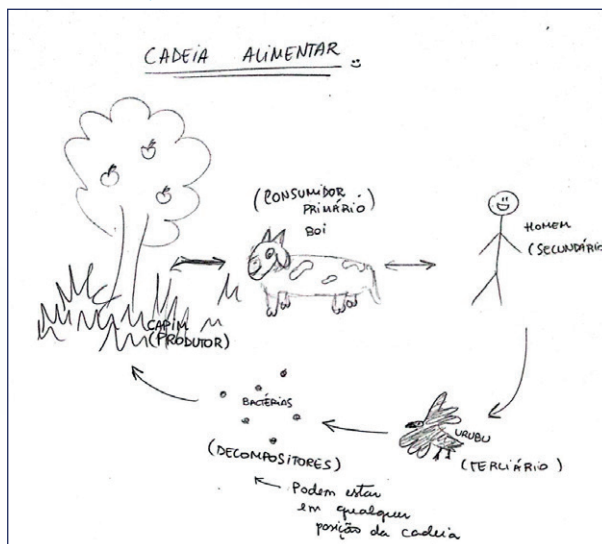 CADEIA ALIMENTAR
(CONSUMIDOR
PRIMÁRIO)
BOI
HOMEM
(SECUNDÁRIO)
CAPIM
(PRODUTOR)
BACTÉRIAS
(DECOMPOSITORES)
URUBU
(TERCIÁRIO)
Podem estar
em qualquer
posição da cadeia